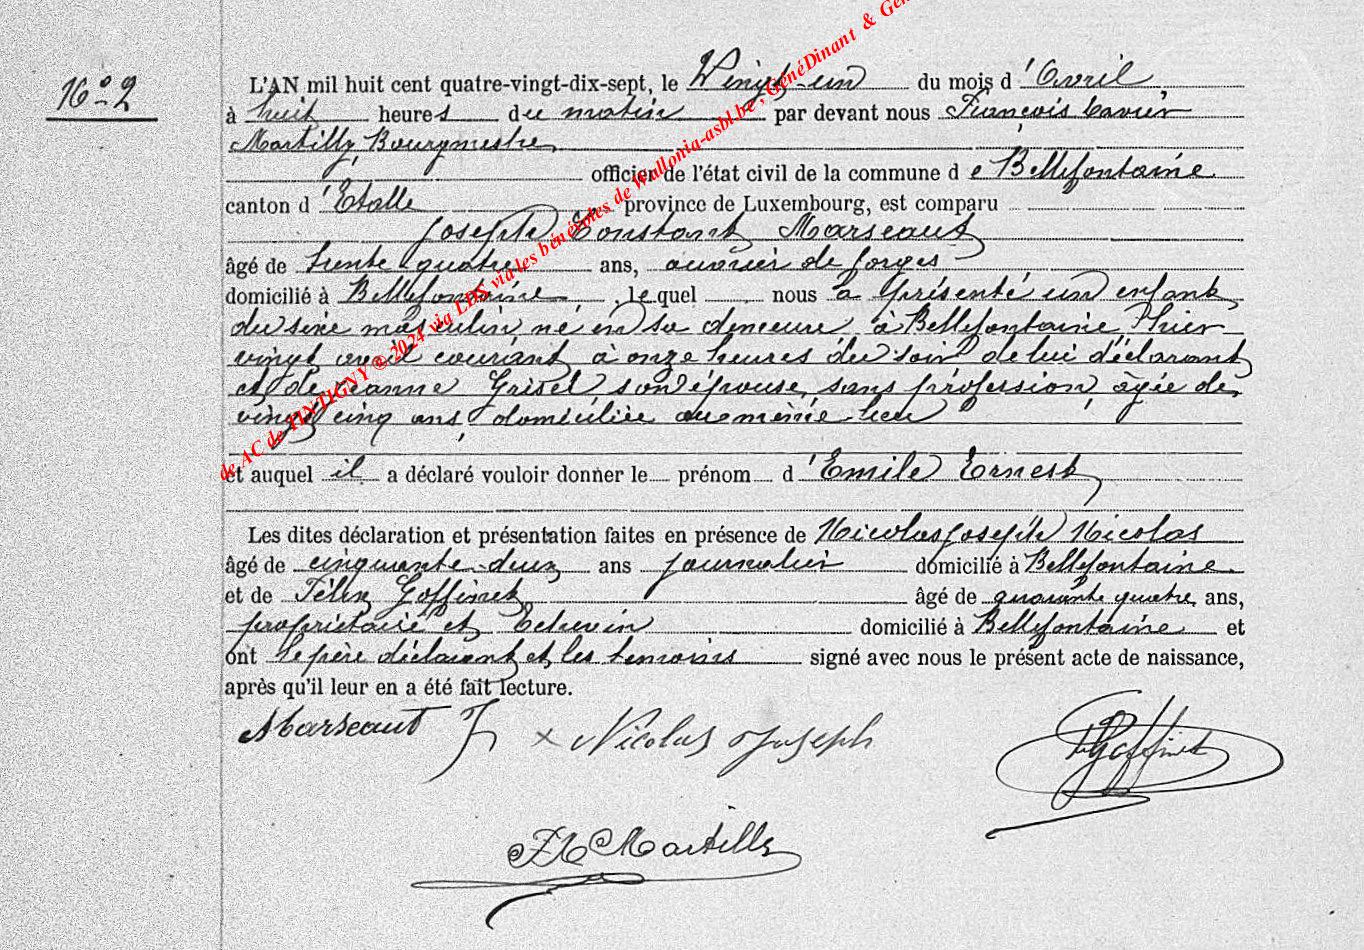 16-2
L'AN mil huit cent quatre-vingt-dix-sept, le Vingt-un du mois d'Avril,
à huit heures du matin par devant nous François Xavier
Martilly, Bourgmestre,
officier de l'état civil de la commune de Bellefontaine
canton d'Etalle province de Luxembourg, est comparu
Joseph Constant Marseaut
âgé de trente quatre ans, ouvrier de forges
domicilié à Bellefontaine, lequel nous a présenté un enfant
du sexe masculin né en sa demeure à Bellefontaine, hier
vingt avril courant, à onze heures du soir de lui déclarant
et de Jeanne Grisel son épouse, sans profession, âgée de
vingt cinq ans, domiciliée au même lieu
et auquel il a déclaré vouloir donner le prénom d'Emile Ernest
Les dites déclaration et présentation faites en présence de Nicolas Joseph Nicolas
âgé de cinquante-deux ans journalier domicilié à Bellefontaine
et de Félix Goffinet âgé de quarante quatre ans,
propriétaire et Echevin domicilié à Bellefontaine et
ont le père déclarant et les temoins signé avec nous le présent acte de naissance,
après qu'il leur en a été fait lecture.
Marseaut J
x Nicolas Joseph
Goffinet
FX Martilly
de AC de TINTIGNY @2024 via LDS via les bénévoles de Wallonia-asbl.be, GénéDinant & Gén